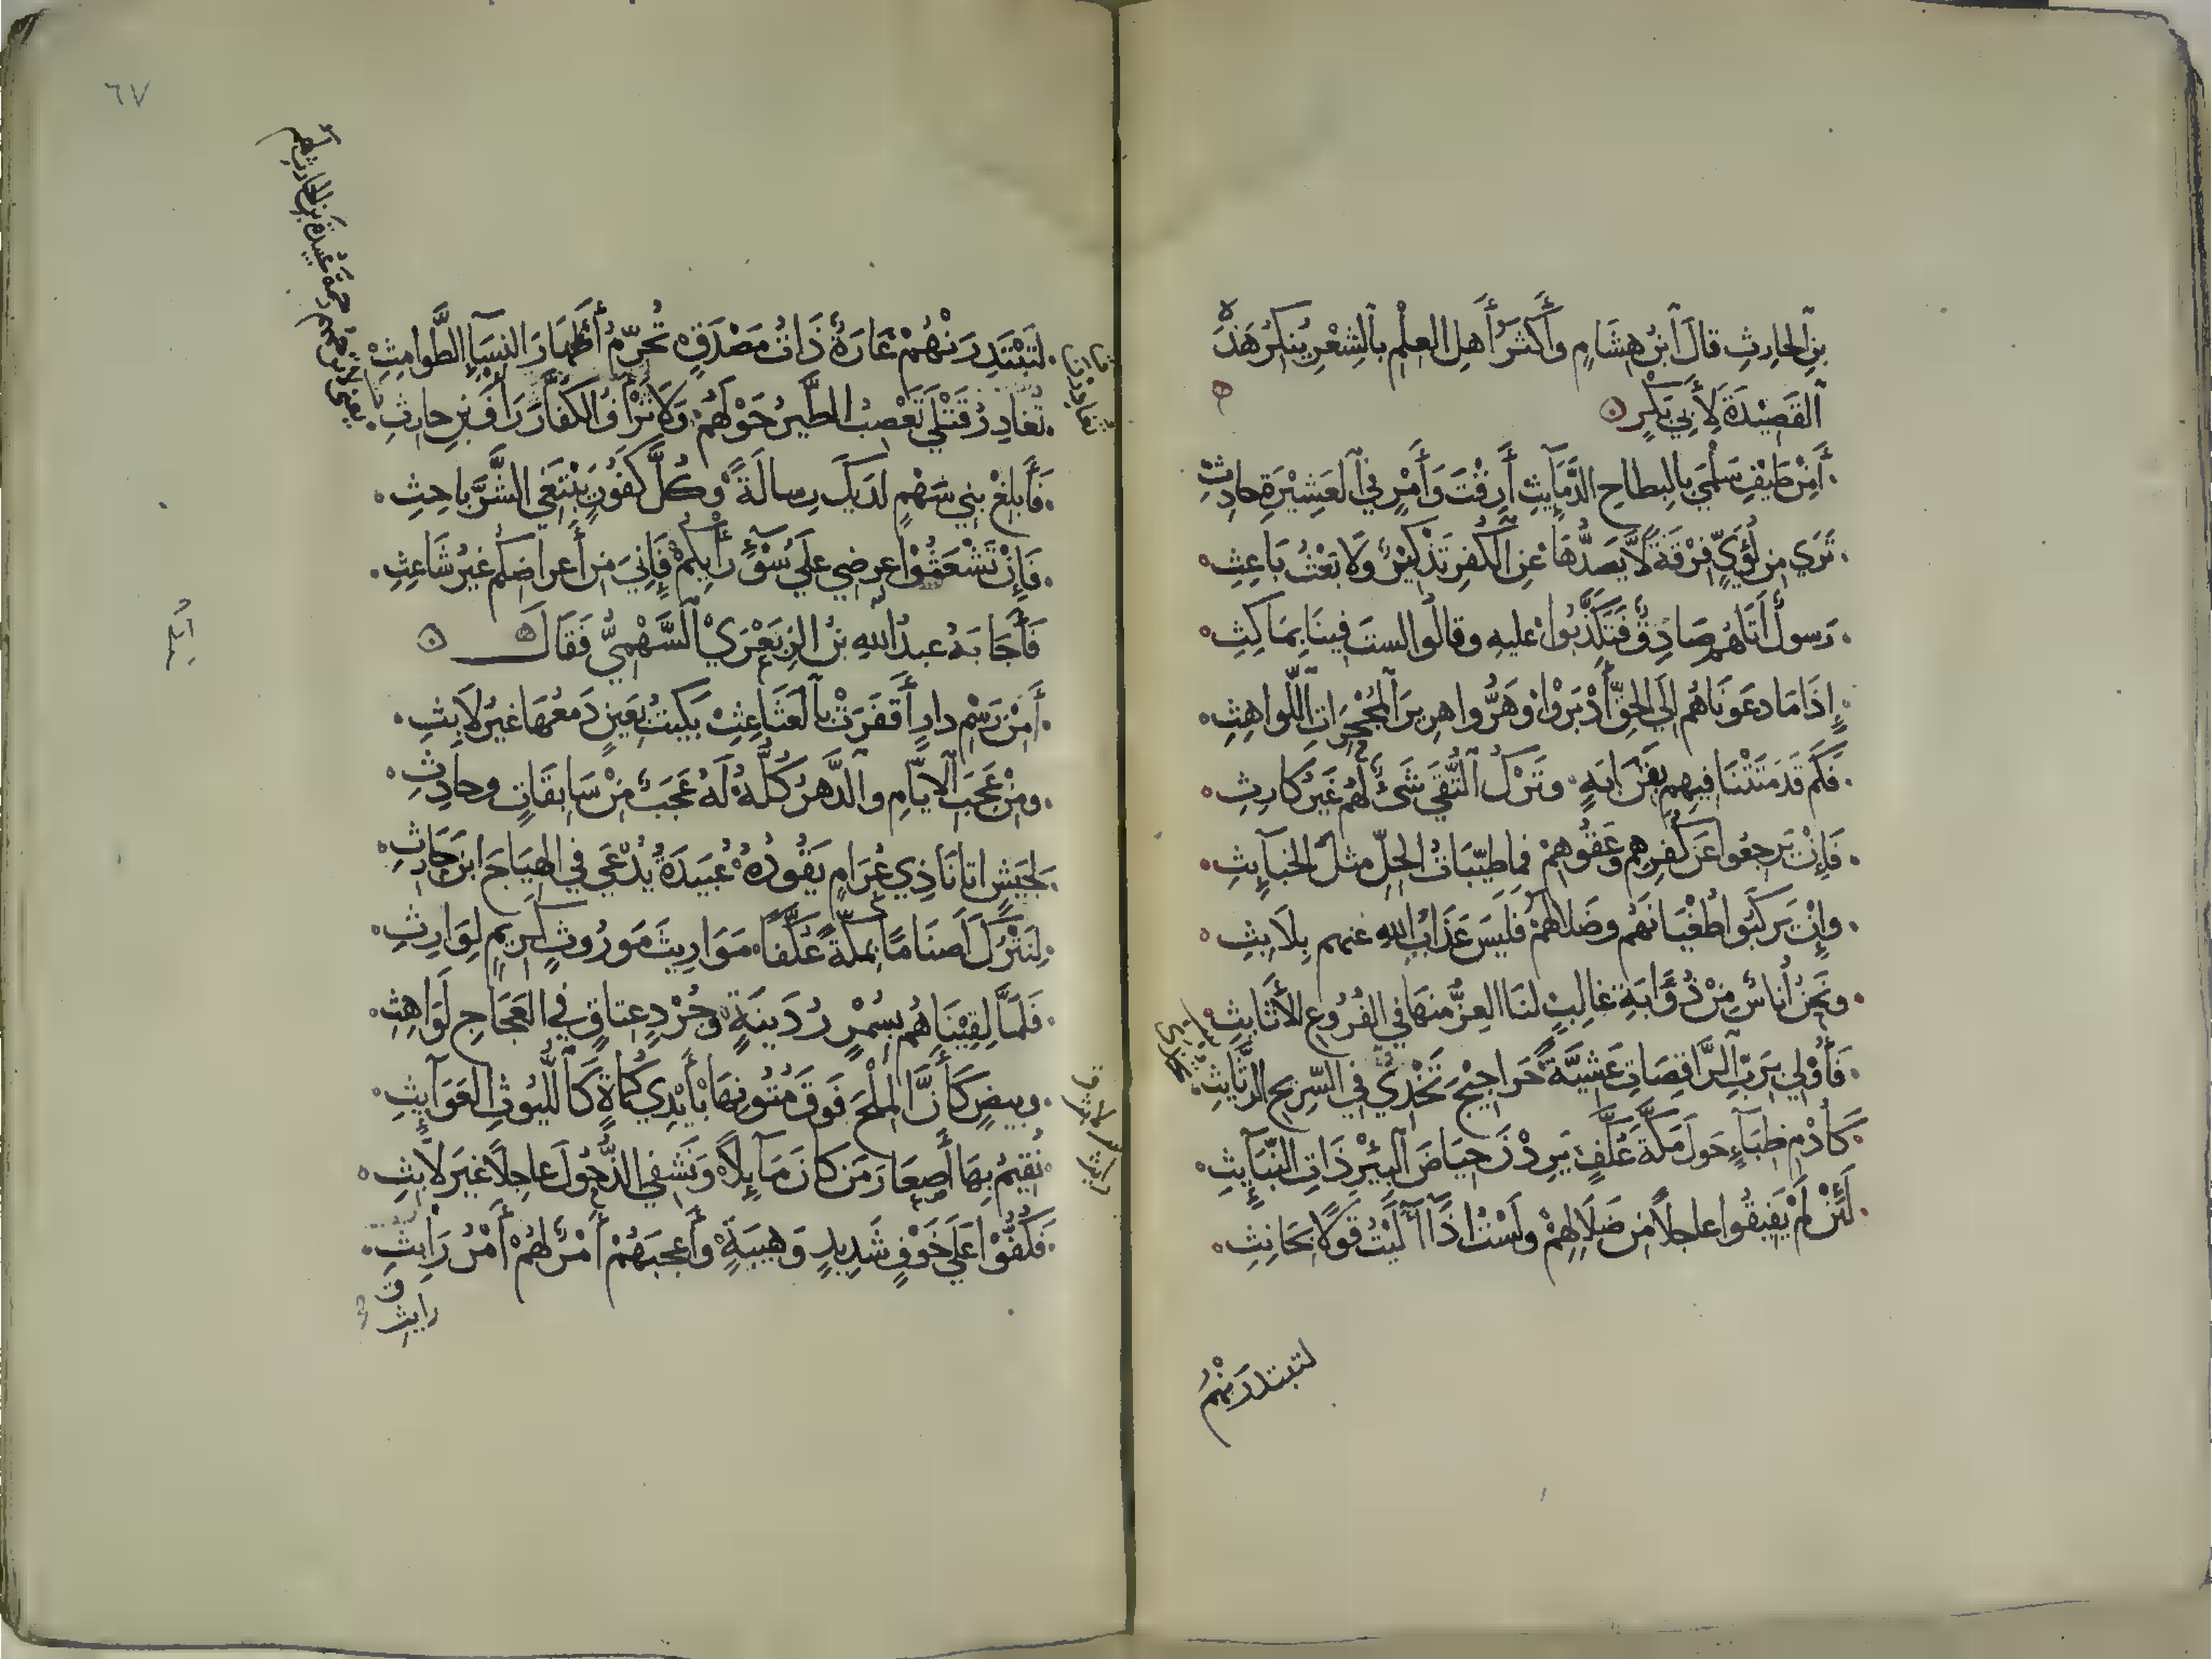 بنِ الحارِثِ قالَ ابنُ هشَامٍ وأَكثَرُ أَهلِ العِلْمِ بالشِعْرِ يُنكرُ هَذهِ
القَصِيْدَةَ لأَبِي بَكْرٍ
أَمِنْ طَيْفِ سَلْمَي بالبِطاحِ الدَّمَآيِثِ أَرِقْتَ وَأَمْرٍ في العَشِيْرَةِ حادِثِ
تَرَي مِن لُؤَيٍّ فِرْقَةً لاَ يَصُدُّهَا عَنِ الكُفرِ تَذْكِيْرٌ وَلاَ بَعْثُ بَاعِثِ
رَسولٌ أَتَاهُم صَادِقٌ فَتَكَذَّبُوا عليهِ وقالُوا لستَ فِينَا بِمَاكِثِ
إِذَا مَا دعَونَاهُم إلَي الحَقِّ أَدْبَرُوْا وَهَرُّوا هرِيرَ المُجْحَرَاتِ اللّواهِثِ
فَكَم قَد مَتَتْنَا فِيهِم بِقَرَابَةٍ وتَرْكُ التُّقَي شَئٌ لَهُم غَيرُ كَارِثِ
فَإِنْ يَرجِعُوا عَن كُفرِهِم وعُقُوهِمْ فما طيّبَاتُ الحِلِّ مثلَ الخبَآيِثِ
وإِنْ يَركَبُوا طُغْيَانَهُم وضَلاَلهُمْ فَليسَ عَذَابُ اللهِ عنهم بِلاَبِثِ
ونَحنُ أُناسٌ مِنْ ذُؤَابَةِ غَالِبٍ لنَا العِزُّ منهَا في الفُرُوعِ الأَثَايِثِ
فَأُوْلي بِرَبِّ الرَّاقِصَاتِ عَشِيَّةً حَرَاجِيْجَ تَخْدِيْ في السّرِيحِ الرَّثَايِثِ
كَأُدْمِ ظِبَآءٍ حَولَ مَكَّةَ عُكَّفٍ يَرِدْنَ حِيَاضَ البِئْرِ ذَاتِ النَّبَآيِثِ
لَئِنْ لَم يُفِيقُوا عاجِلاً مِن ضَلاَلِهِمْ ولَسْتُ اذًا آلَيْتُ قَولاً بحَانِثِ
لتبتدرَنْهُمْ
٦٧
لَتَبْتَدِرَنْهُمْ غَارَةٌ ذَاتُ مَصْدَقٍ تُحَرِّمُ أَطْهَارَ النِّسَآءِ الطَّوامِثِ
تُغَادِرُ قَتْلَي تَعْصِبُ الطَّيرُ حَوْلَهُم وَلاَ تَرْأَفُ الكُفَّارَ رَأْفَ ابنِ حارِثِ
فَأَبلِغْ بَنِي سَهْمٍ لدَيكَ رِسالَةً وكُلَّ كَفُورٍ يَبْتَغِي الشَّرَّ باحِثِ
فَإِنْ تَشْعَثُوْا عِرضِي علَي سُوْءِ رَأيِكُمْ فَإِنِّيَ مِن أَعراضِكُم غيرُ شَاعِثِ
فَأَجَابَهُ عبدُ اللهِ بنُ الزِبَعْرَيْ السَّهْمِيُّ فَقَالَ
أَمِنْ رَسْمِ دارٍ أَقفَرَتْ بالعَثَاعِثِ بَكَيتَ بعَينٍ دَمعُهَا غيرُ لاَبِثِ
ومِنْ عَجَبِ الايّامِ والدَّهرُ كُلُّهُ لَهُ عَجَبٌ مِنْ سَابقَاتٍ وحَادِثِ
لجَيشٍ اتانَا ذِي عُرَامٍ يَقُودُهُ عُبَيدَةُ يُدْعَي في الهيَاجِ ابنَ حَارِثِ
لِنَترُكَ أَصنَامًا بمكّةَ عُكَّفاً مَوَارِيثَ مَورُوثٍ كَرِيمٍ لِوَارِثِ
فَلمّا لقِيْنَاهُم بِسُمْرٍ رُدَينَةٍ وجُرْدٍ عِتاقٍ في العَجَاجِ لَوَاهِثِ
وبِيضٍ كَأَنَّ المِلْحَ فَوقَ مُتُونِهَا بِأَيْدِي كُمَاةٍ كَاللُّيُوثِ العَوَآيِثِ
نُقِيمُ بِهَا أَصعَارَ مَن كانَ مَآيِلاً وَنَشفِي الذُّحُولَ عاجِلاً غَيرَ لاَبِثِ
فَكَفُّوْا عَلَي خَوْفٍ شَدِيدٍ وَهيبَةٍ وأَعجَبَهُمْ أَمْرٌ لهُم أَمْرُ رَايِثِ
رايث